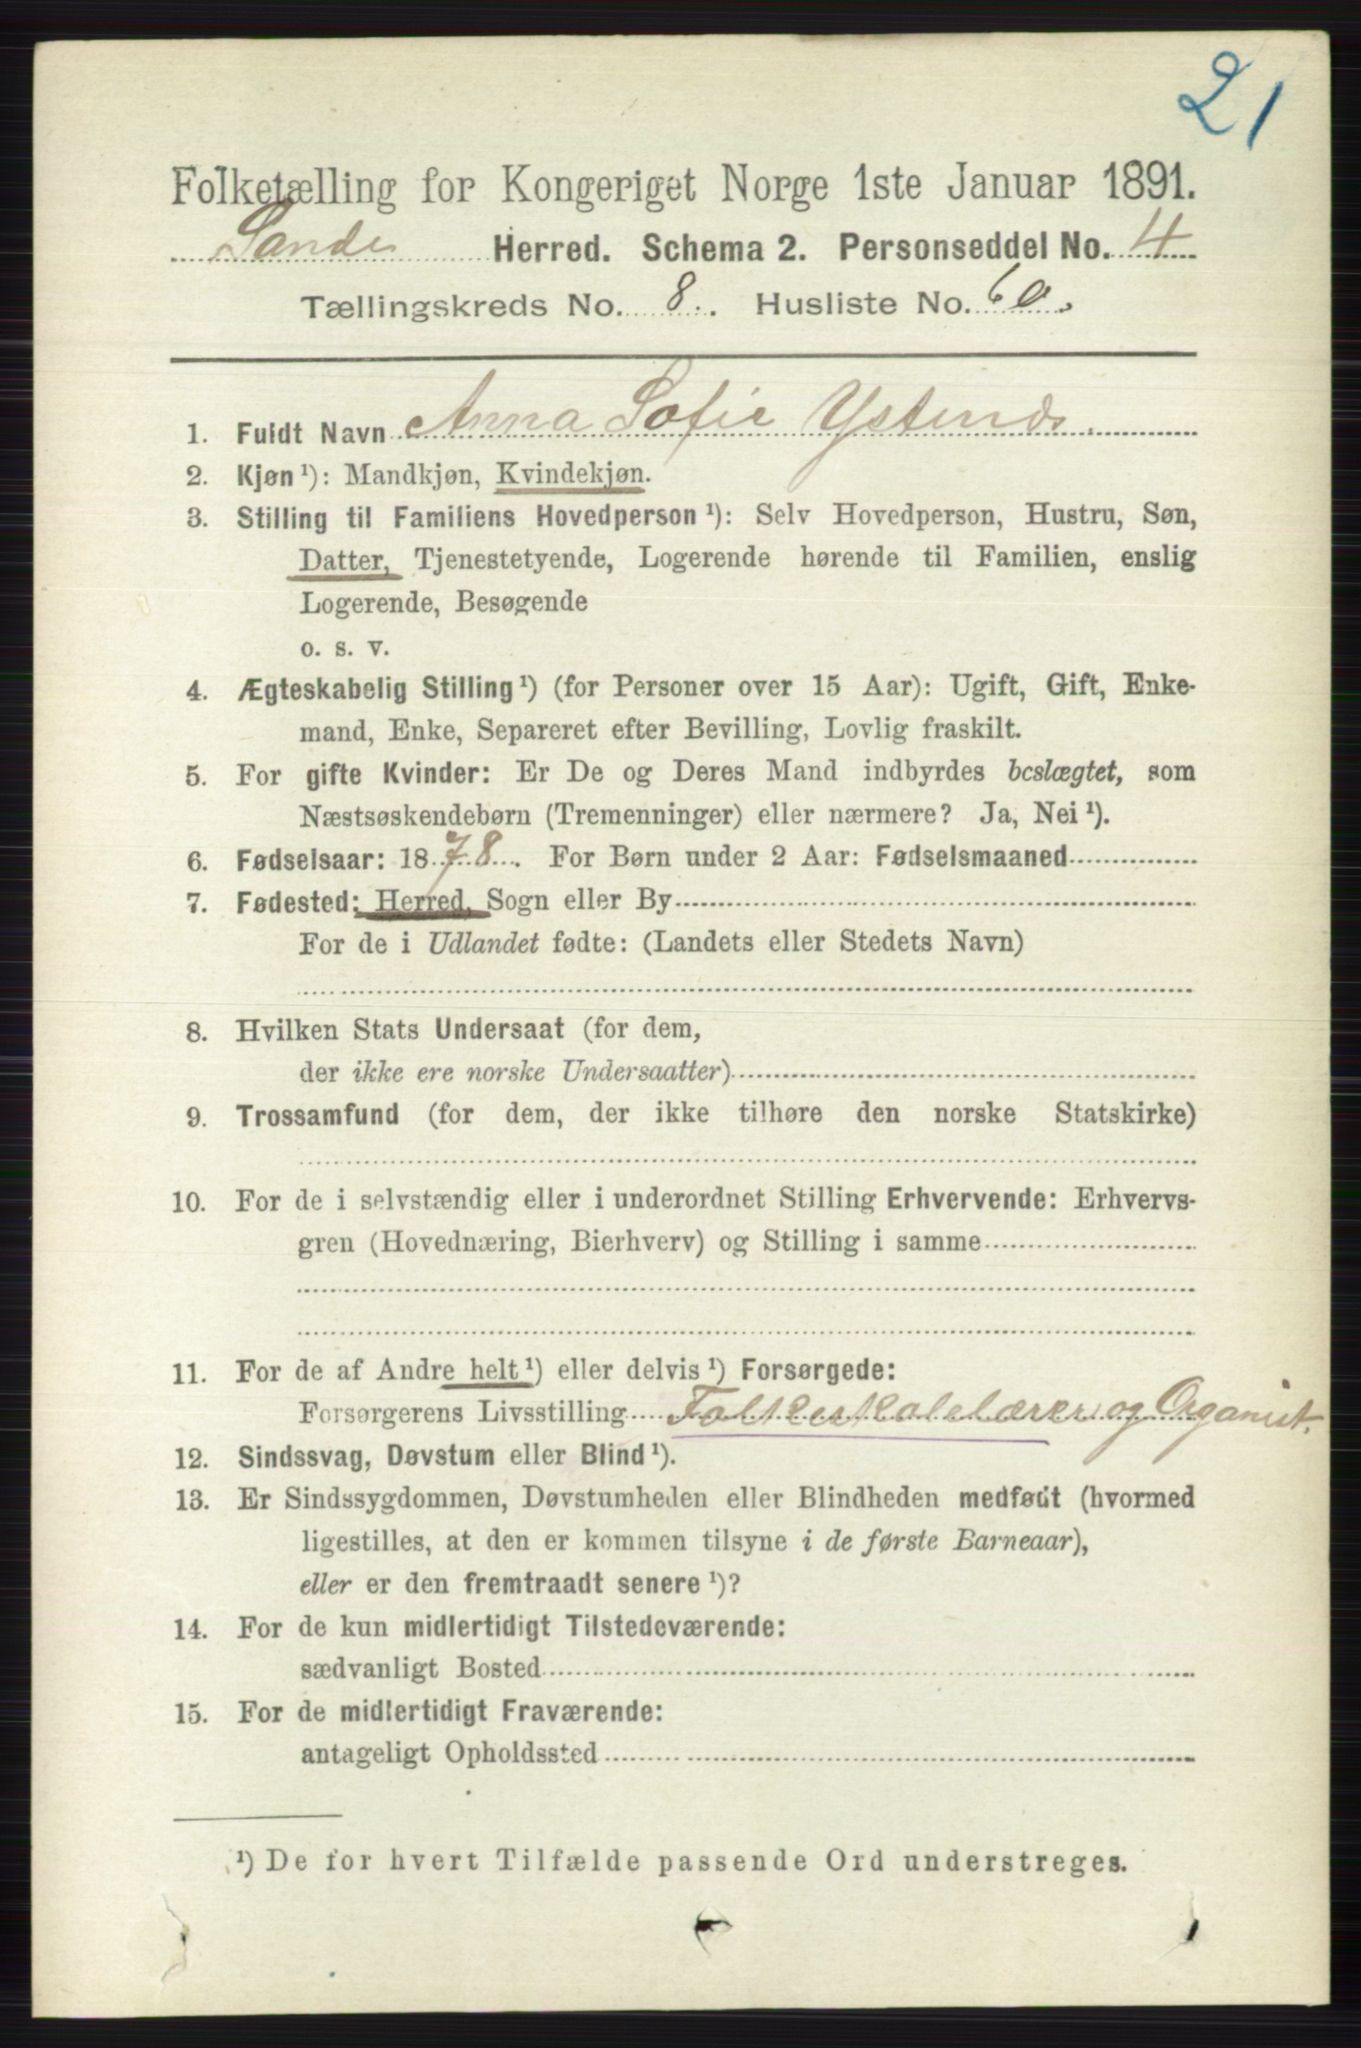 21
Folketælling for Kongeriget Norge 1ste Januar 1891.
Sande Herred. Schema 2. Personseddel No. 4
Tællingskreds No. 8. Husliste No. 60.
1. Fuldt Navn Anna Sofie
2. Kjøn ¹): Mandkjøn, Kvindekjøn.
3. Stilling til Familiens Hovedperson ¹): Selv Hovedperson, Hustru, Søn,
Datter, Tjenestetyende, Logerende hørende til Familien, enslig
Logerende, Besøgende
o. s. v.
4. Ægteskabelig Stilling ¹) (for Personer over 15 Aar): Ugift, Gift, Enke-
mand, Enke, Separeret efter Bevilling, Lovlig fraskilt.
5. For gifte Kvinder: Er De og Deres Mand indbyrdes beslægtet, som
Næstsøskendebørn (Tremenninger) eller nærmere? Ja, Nei ¹).
6. Fødselsaar: 1878. For Børn under 2 Aar: Fødselsmaaned
7. Fødested: Herred, Sogn eller By
For de i Udlandet fødte: (Landets eller Stedets Navn)
8. Hvilken Stats Undersaat (for dem,
der ikke ere norske Undersaatter)
9. Trossamfund (for dem, der ikke tilhøre den norske Statskirke)
10. For de i selvstændig eller i underordnet Stilling Erhvervende: Erhvervs-
gren (Hovednæring, Bierhverv) og Stilling i samme
11. For de af Andre helt ¹) eller delvis ¹) Forsørgede:
Forsørgerens Livsstilling Folkeskolelærer og Organist.
12. Sindssvag, Døvstum eller Blind ¹).
13. Er Sindssygdommen, Døvstumheden eller Blindheden medfødt (hvormed
ligestilles, at den er kommen tilsyne i de første Barneaar),
eller er den fremtraadt senere ¹)?
14. For de kun midlertidigt Tilstedeværende:
sædvanligt Bosted
15. For de midlertidigt Fraværende:
antageligt Opholdssted
¹) De for hvert Tilfælde passende Ord understreges.